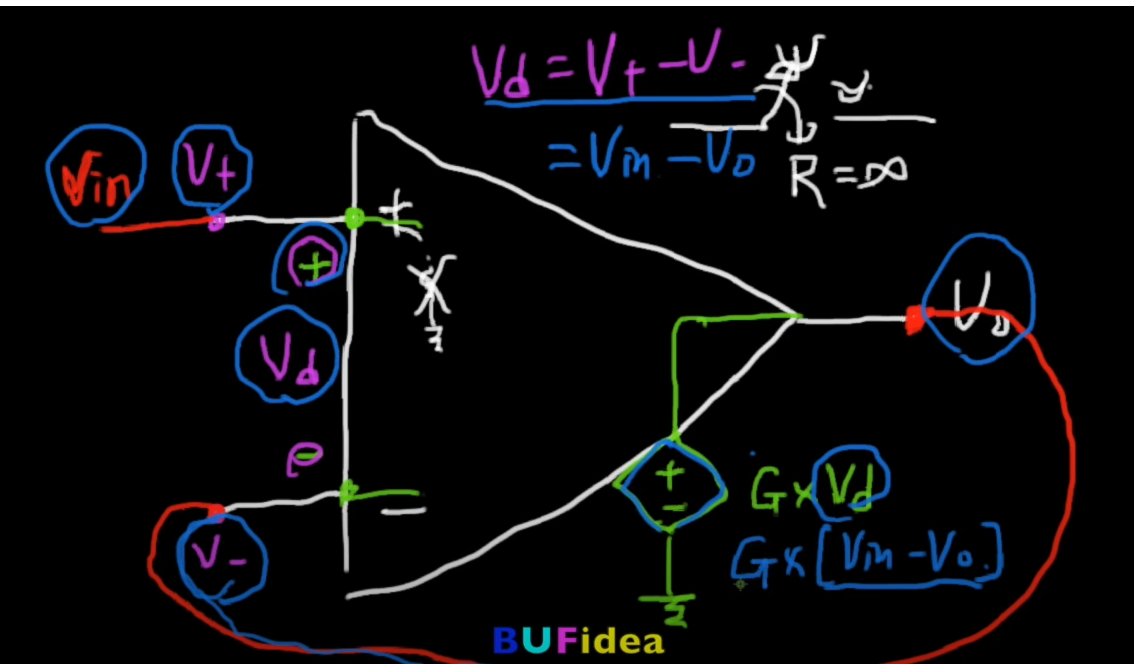 Vd = V+ - V-
= Vin - Vo
R = ∞
Vin
V+
+
+
Vd
Vo
-
V-
-
+
-
G x Vd
G x [Vin - Vo]
BUFidea